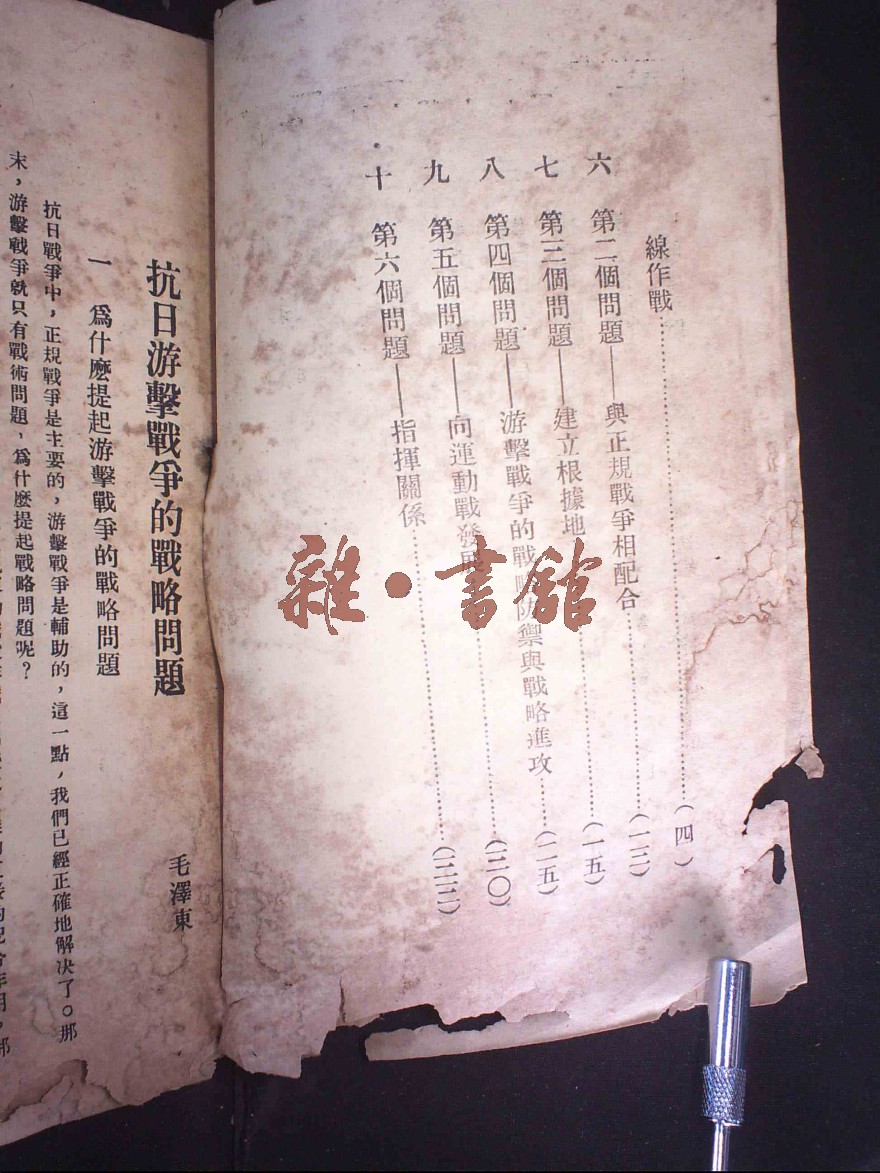 線作戰……(四)
六 第二個問題——與正規戰爭相配合……
七 第三個問題——建立根據地……(一五)
八 第四個問題——游擊戰爭的戰略防禦與戰略進攻……(二五)
九 第五個問題——向運動戰發展……
十 第六個問題——指揮關係……
雜·書館
抗日游擊戰爭的戰略問題
毛澤東
一 爲什麼提起游擊戰爭的戰略問題
抗日戰爭中，正規戰爭是主要的，游擊戰爭是輔助的，這一點，我們已經正確地解決了。那
末，游擊戰爭就只有戰術問題，爲什麼提起戰略問題呢？